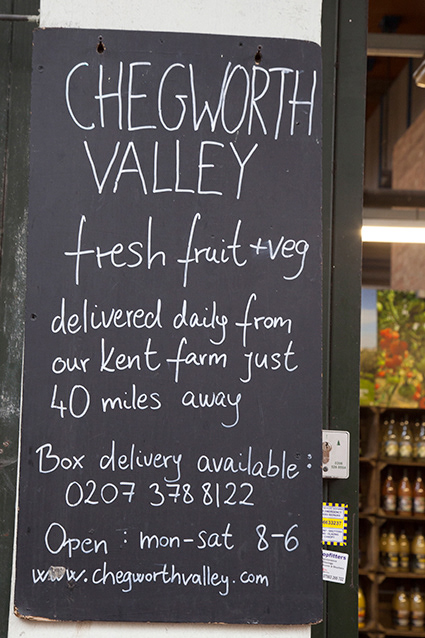 CHEGWORTH
VALLEY
fresh fruit + veg
delivered daily from
our Kent farm just
40 miles away
Box delivery available:
0207 378 8122
Open : mon-sat 8-6
www.chegworthvalley.com